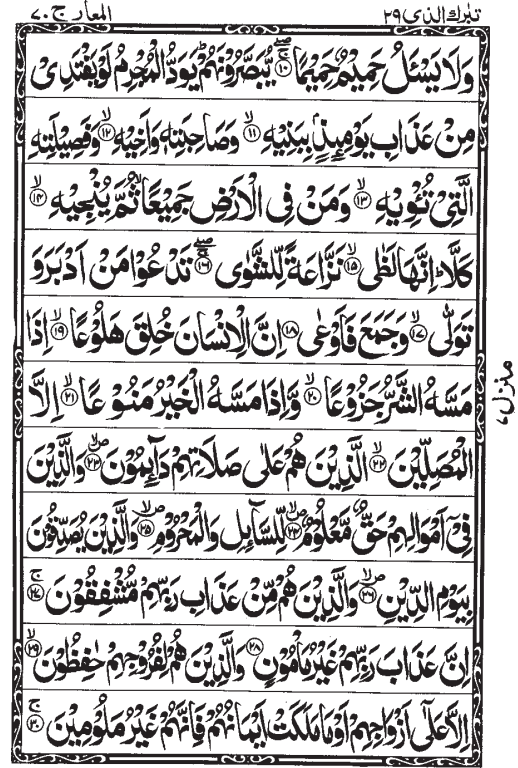 تبٰرك الذی ۲۹
المعارج ۷۰
وَلَا يَسْـَٔلُ حَمِيْمٌ حَمِيْمًا ۚۖ ۱۰ يُّبَصَّرُوْنَهُمْ ؕ يَوَدُّ الْمُجْرِمُ لَوْ يَفْتَدِىْ
مِنْ عَذَابِ يَوْمِئِذٍۭ بِبَنِيْهِ ۙ ۱۱ وَصَاحِبَتِهٖ وَاَخِيْهِ ۙ ۱۲ وَفَصِيْلَتِهِ
الَّتِىْ تُـْٔوِيْهِ ۙ ۱۳ وَمَنْ فِى الْاَرْضِ جَمِيْعًا ۙ ثُمَّ يُنْجِيْهِ ۙ ۱۴
كَلَّا ؕ اِنَّهَا لَظٰى ۙ ۱۵ نَزَّاعَةً لِّلشَّوٰى ۚۖ ۱۶ تَدْعُوْا مَنْ اَدْبَرَ وَ
تَوَلّٰى ۙ ۱۷ وَجَمَعَ فَاَوْعٰى ۱۸ اِنَّ الْاِنْسَانَ خُلِقَ هَلُوْعًا ۙ ۱۹ اِذَا
مَسَّهُ الشَّرُّ جَزُوْعًا ۙ ۲۰ وَّاِذَا مَسَّهُ الْخَيْرُ مَنُوْعًا ۙ ۲۱ اِلَّا
الْمُصَلِّيْنَ ۙ ۲۲ الَّذِيْنَ هُمْ عَلٰى صَلَاتِهِمْ دَآئِمُوْنَ ۪ۙ ۲۳ وَالَّذِيْنَ
فِىْۤ اَمْوَالِهِمْ حَقٌّ مَّعْلُوْمٌ ۪ۙ ۲۴ لِّلسَّآئِلِ وَالْمَحْرُوْمِ ۪ۙ ۲۵ وَالَّذِيْنَ يُصَدِّقُوْنَ
بِيَوْمِ الدِّيْنِ ۪ۙ ۲۶ وَالَّذِيْنَ هُمْ مِّنْ عَذَابِ رَبِّهِمْ مُّشْفِقُوْنَ ۚ ۲۷
اِنَّ عَذَابَ رَبِّهِمْ غَيْرُ مَاْمُوْنٍ ۲۸ وَالَّذِيْنَ هُمْ لِفُرُوْجِهِمْ حٰفِظُوْنَ ۙ ۲۹
اِلَّا عَلٰٓى اَزْوَاجِهِمْ اَوْ مَا مَلَكَتْ اَيْمَانُهُمْ فَاِنَّهُمْ غَيْرُ مَلُوْمِيْنَ ۚ ۳۰
منزل ۷